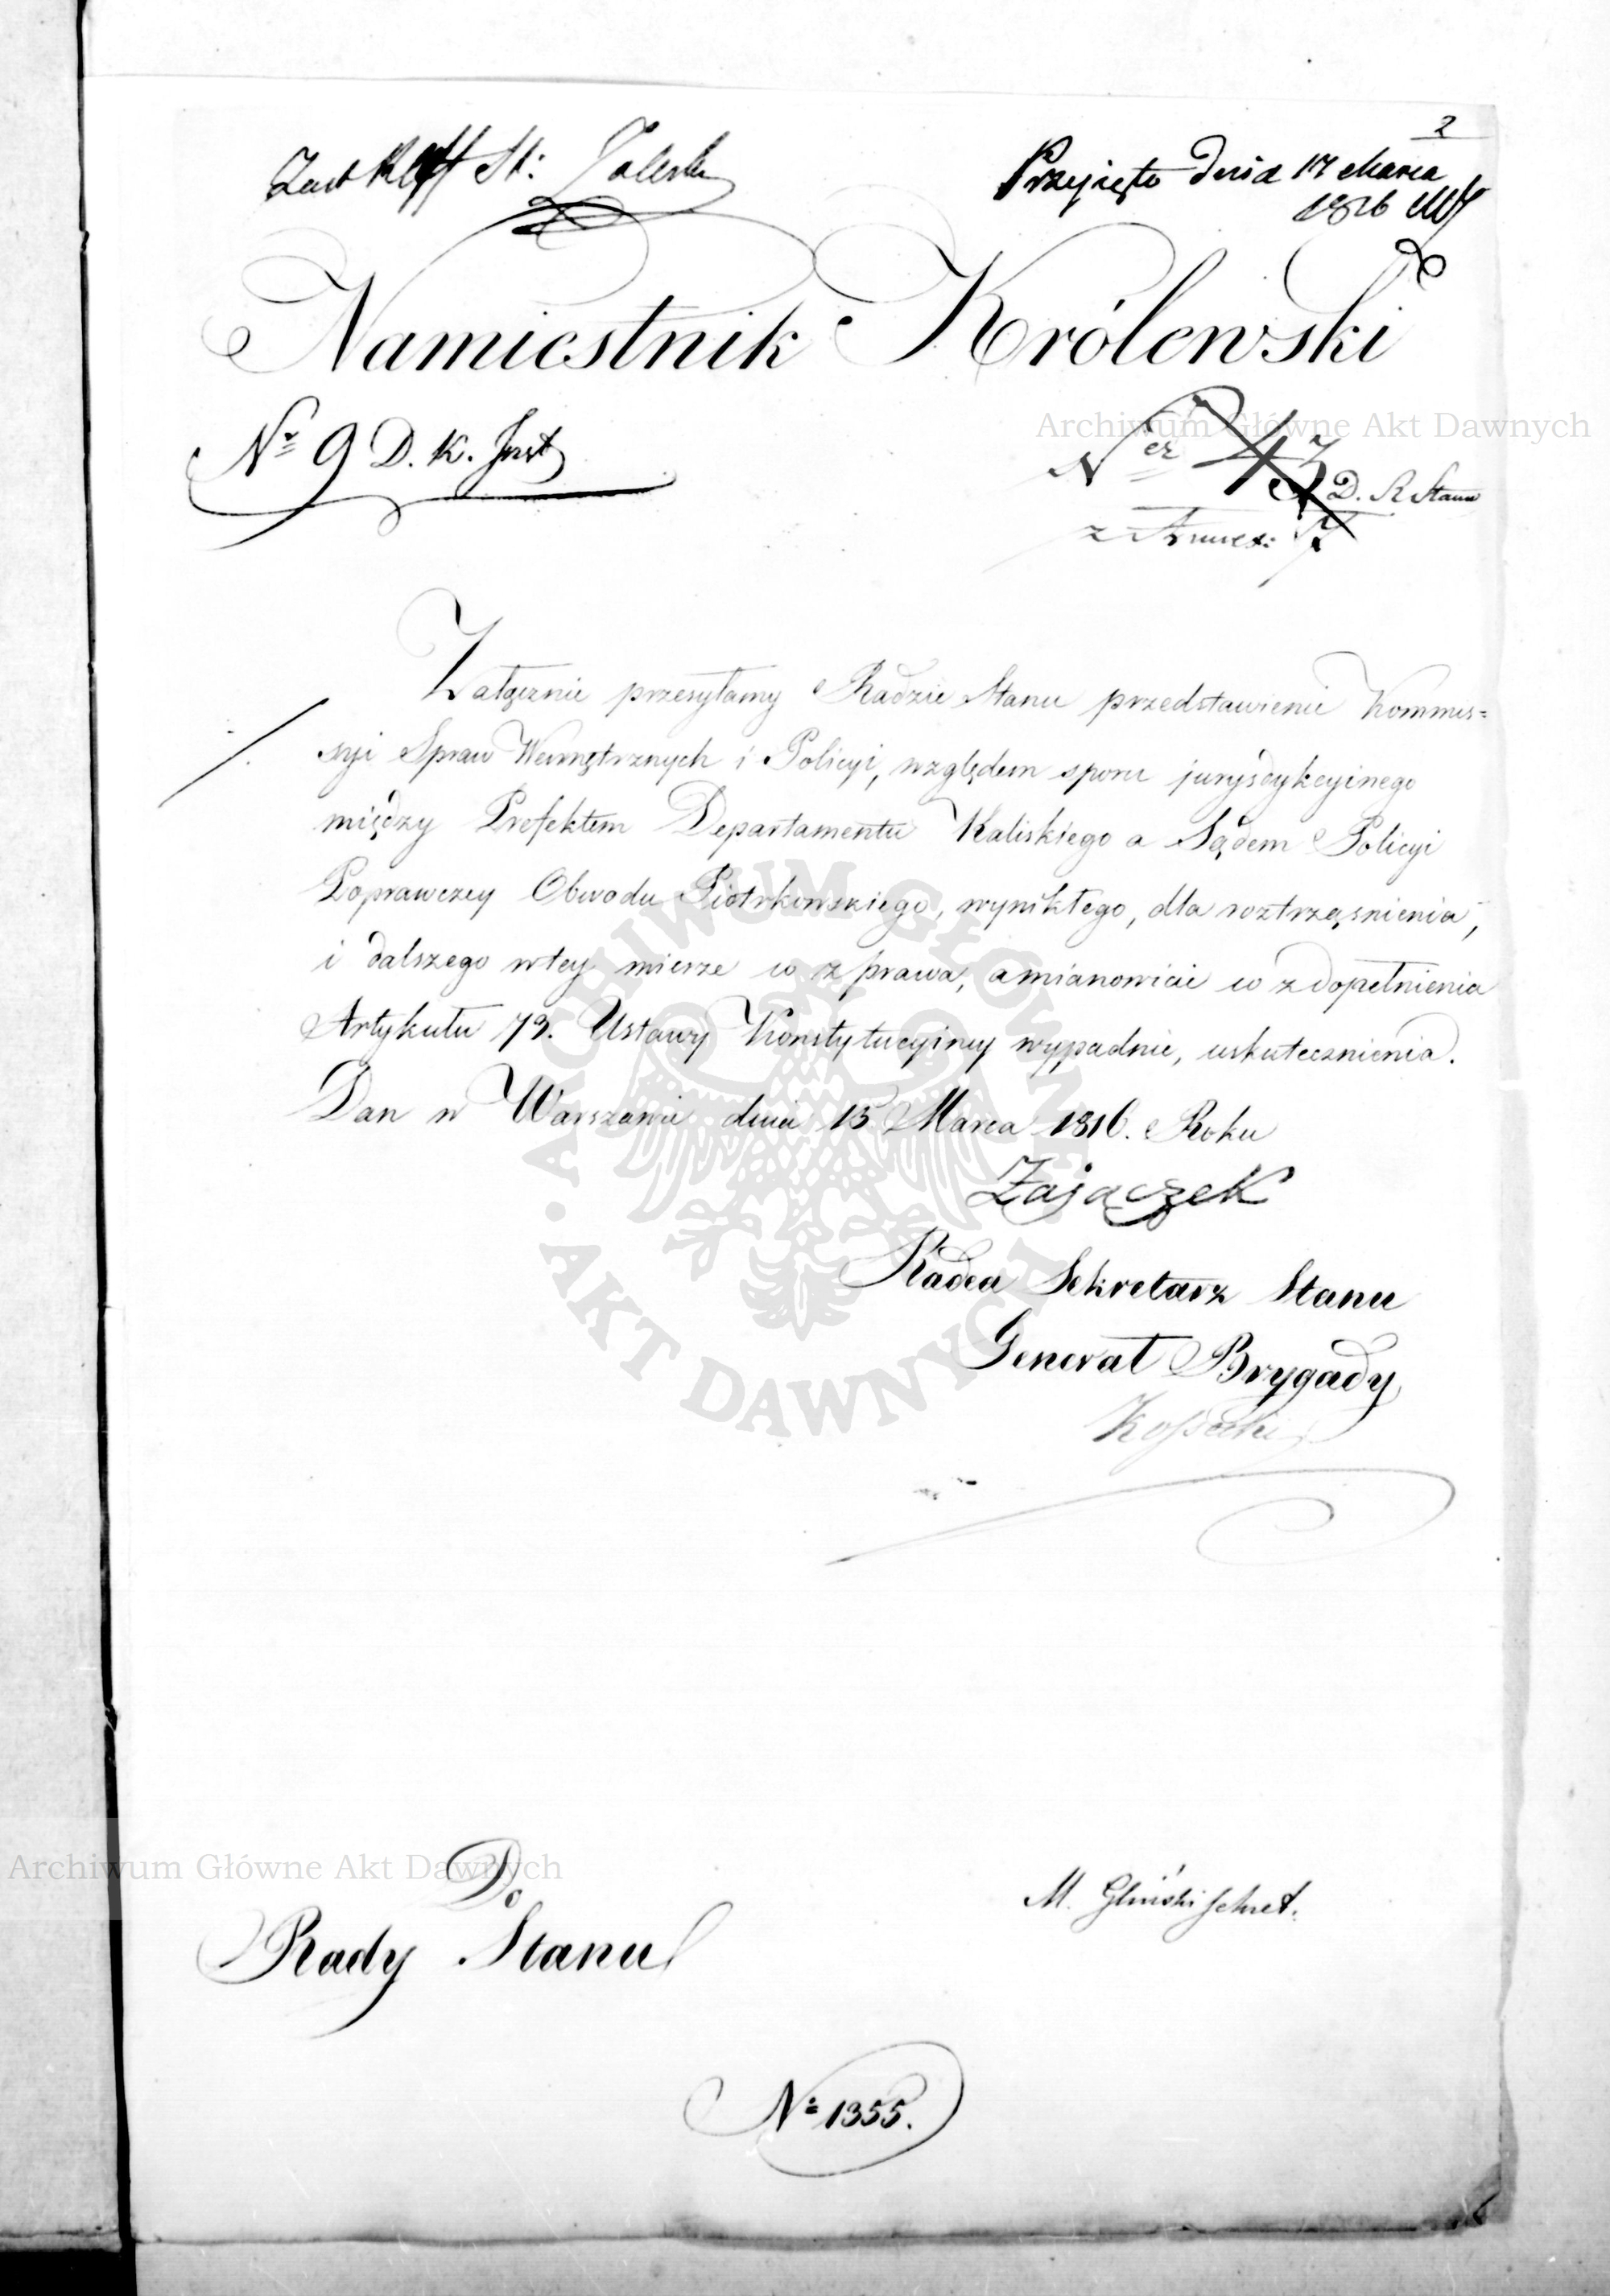 2
Przyjęto dnia 17 Marca
1816
Namiestnik Królewski
Nº 9 D. K. Just
Archiwum Główne Akt Dawnych
Ner 43 D. R Stanu
z Annex: 7
Załącznie przesyłamy Radzie Stanu przedstawienie Kommis=
syi Spraw Wewnętrznych i Policyi, względem sporu jurysdykcyinego
między Prefektem Departamentu Kaliskiego a Sądem Policyi
Poprawczey Obwodu Piotrkowskiego, wynikłego, dla roztrząśnienia,
i dalszego w tey mierze co z prawa, a mianowicie co z dopełnienia
Artykułu 73. Ustawy Konstytucyiney wypadnie, uskutecznienia.
Dan w Warszawie dnia 15 Marca 1816. Roku
Zajączek
Radca Sekretarz Stanu
Generał Brygady
Kossecki
ARCHIWUM GŁÓWNE · AKT DAWNYCH ·
Archiwum Główne Akt Dawnych
Do
Rady Stanu
M. Gliński Sekret.
Nº 1355.